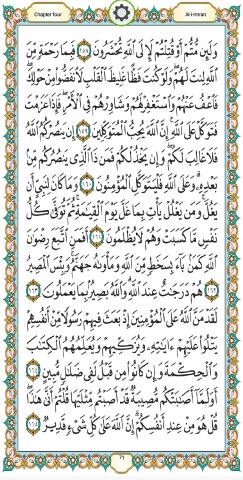 Chapter four
Al-i-Imran
وَلَئِن مُّتُّمْ أَوْ قُتِلْتُمْ لَإِلَى اللَّهِ تُحْشَرُونَ ١٥٨ فَبِمَا رَحْمَةٍ مِّنَ
اللَّهِ لِنتَ لَهُمْ وَلَوْ كُنتَ فَظًّا غَلِيظَ الْقَلْبِ لَانفَضُّوا مِنْ حَوْلِكَ
فَاعْفُ عَنْهُمْ وَاسْتَغْفِرْ لَهُمْ وَشَاوِرْهُمْ فِي الْأَمْرِ فَإِذَا عَزَمْتَ
فَتَوَكَّلْ عَلَى اللَّهِ إِنَّ اللَّهَ يُحِبُّ الْمُتَوَكِّلِينَ ١٥٩ إِن يَنصُرْكُمُ اللَّهُ
فَلَا غَالِبَ لَكُمْ وَإِن يَخْذُلْكُمْ فَمَن ذَا الَّذِي يَنصُرُكُم مِّن
بَعْدِهِ وَعَلَى اللَّهِ فَلْيَتَوَكَّلِ الْمُؤْمِنُونَ ١٦٠ وَمَا كَانَ لِنَبِيٍّ أَن
يَغُلَّ وَمَن يَغْلُلْ يَأْتِ بِمَا غَلَّ يَوْمَ الْقِيَامَةِ ثُمَّ تُوَفَّى كُلُّ
نَفْسٍ مَّا كَسَبَتْ وَهُمْ لَا يُظْلَمُونَ ١٦١ أَفَمَنِ اتَّبَعَ رِضْوَنَ
اللَّهِ كَمَن بَاءَ بِسَخَطٍ مِّنَ اللَّهِ وَمَأْوَىٰهُ جَهَنَّمُ وَبِئْسَ الْمَصِيرُ
١٦٢ هُمْ دَرَجَٰتٌ عِندَ اللَّهِ وَاللَّهُ بَصِيرٌ بِمَا يَعْمَلُونَ ١٦٣
لَقَدْ مَنَّ اللَّهُ عَلَى الْمُؤْمِنِينَ إِذْ بَعَثَ فِيهِمْ رَسُولًا مِّنْ أَنفُسِهِمْ
يَتْلُوا عَلَيْهِمْ ءَايَٰتِهِ وَيُزَكِّيهِمْ وَيُعَلِّمُهُمُ الْكِتَٰبَ
وَالْحِكْمَةَ وَإِن كَانُوا مِن قَبْلُ لَفِي ضَلَٰلٍ مُّبِينٍ ١٦٤
أَوَلَمَّا أَصَٰبَتْكُم مُّصِيبَةٌ قَدْ أَصَبْتُم مِّثْلَيْهَا قُلْتُمْ أَنَّىٰ هَٰذَا
قُلْ هُوَ مِنْ عِندِ أَنفُسِكُمْ إِنَّ اللَّهَ عَلَىٰ كُلِّ شَيْءٍ قَدِيرٌ ١٦٥
٧١